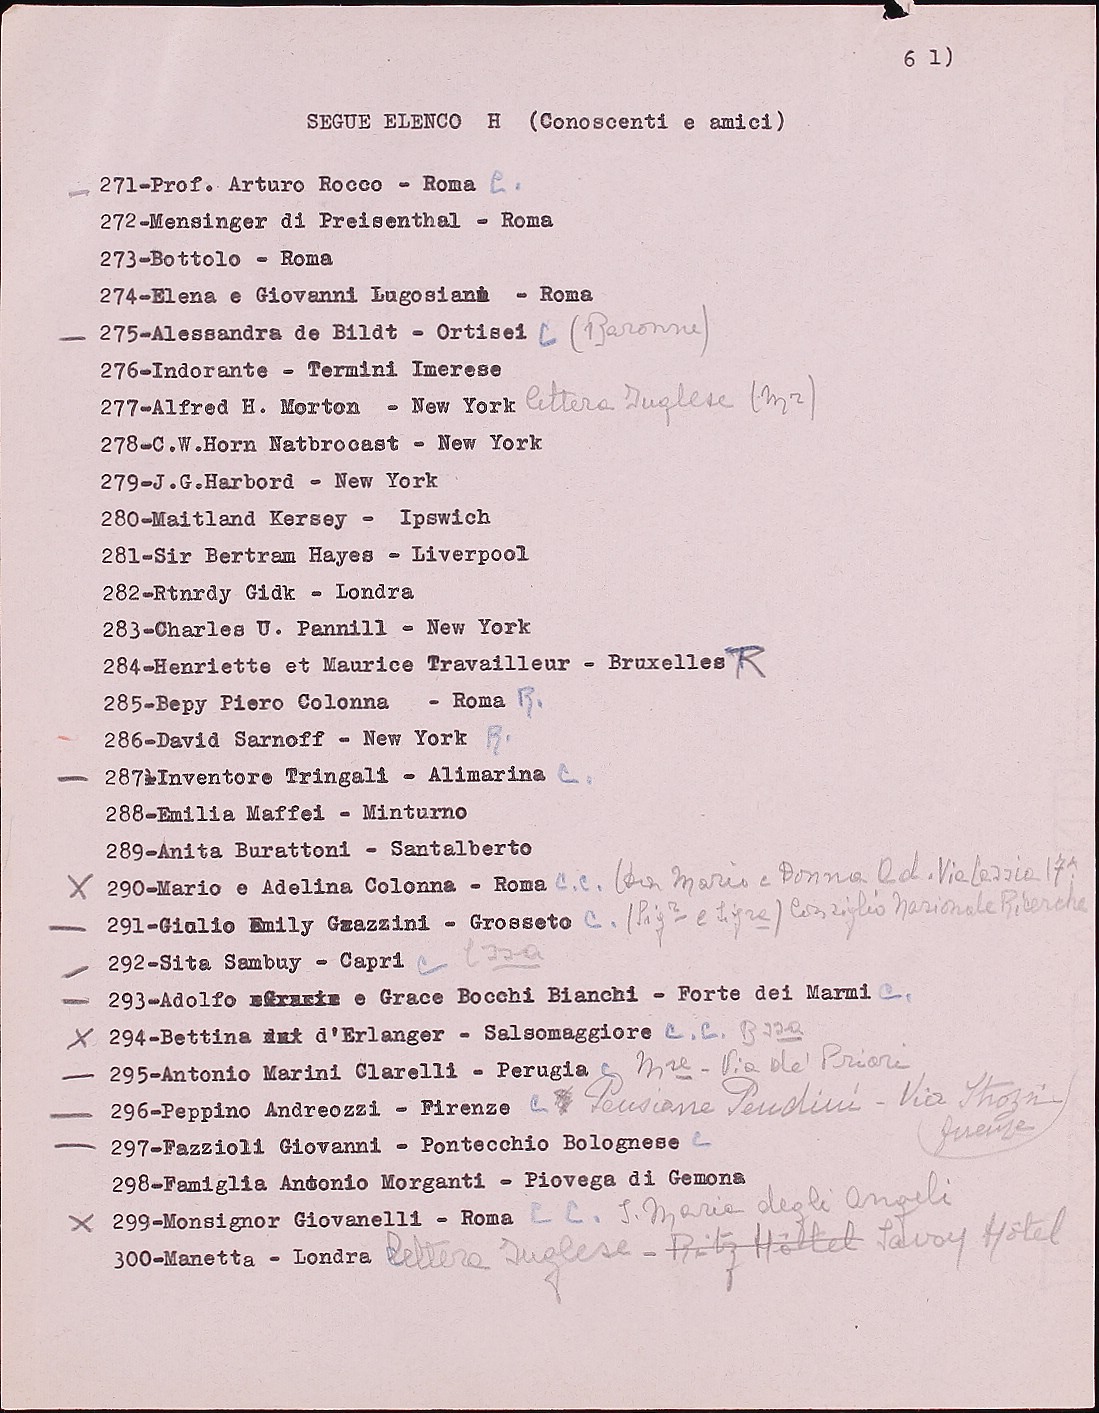 6 1)
SEGUE ELENCO H (Conoscenti e amici)
271-Prof. Arturo Rocco - Roma C.
272-Mensinger di Preisenthal - Roma
273-Bottolo - Roma
274-Elena e Giovanni Lugosiani - Roma
275-Alessandra de Bildt - Ortisei C (Baronne)
276-Indorante - Termini Imerese
277-Alfred H. Morton - New York lettera Inglese (Mr)
278-C.W.Horn Natbrocast - New York
279-J.G.Harbord - New York
280-Maitland Kersey - Ipswich
281-Sir Bertram Hayes - Liverpool
282-Rtnrdy Gidk - Londra
283-Charles U. Pannill - New York
284-Henriette et Maurice Travailleur - Bruxelles R
285-Bepy Piero Colonna - Roma R.
286-David Sarnoff - New York R.
287-Inventore Tringali - Alimarina C.
288-Emilia Maffei - Minturno
289-Anita Burattoni - Santalberto
X 290-Mario e Adelina Colonna - Roma C.C. Mario e Donna Ad. Via 17
291-Giulio Emily Grazzini - Grosseto C. (Sigr e Sigra) Consiglio Nazionale Ricerche
292-Sita Sambuy - Capri C
293-Adolfo e Grace Bocchi Bianchi - Forte dei Marmi C.
X 294-Bettina d'Erlanger - Salsomaggiore C.C. Bssa
295-Antonio Marini Clarelli - Perugia C Mse - Via de' Priori
296-Peppino Andreozzi - Firenze C Pensione Pendini - Via Strozzi
Firenze
297-Fazzioli Giovanni - Pontecchio Bolognese C
298-Famiglia Antonio Morganti - Piovega di Gemona
X 299-Monsignor Giovanelli - Roma C C. S. Maria degli Angeli
300-Manetta - Londra lettera Inglese - Ritz Hôtel Savoy Hôtel